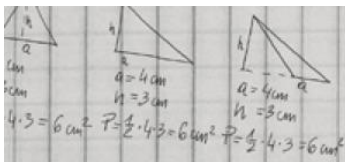 h
a
cm
cm
4·3=6cm²
h
a
a=4cm
h=3cm
P=1/2·4·3=6cm²
h
a
a=4cm
h=3cm
P=1/2·4·3=6cm²